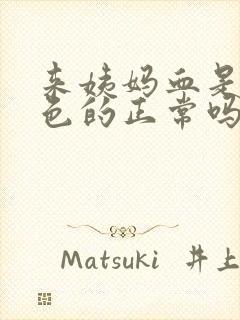 来姨妈血是
色的正常吗
Matsuki 井上